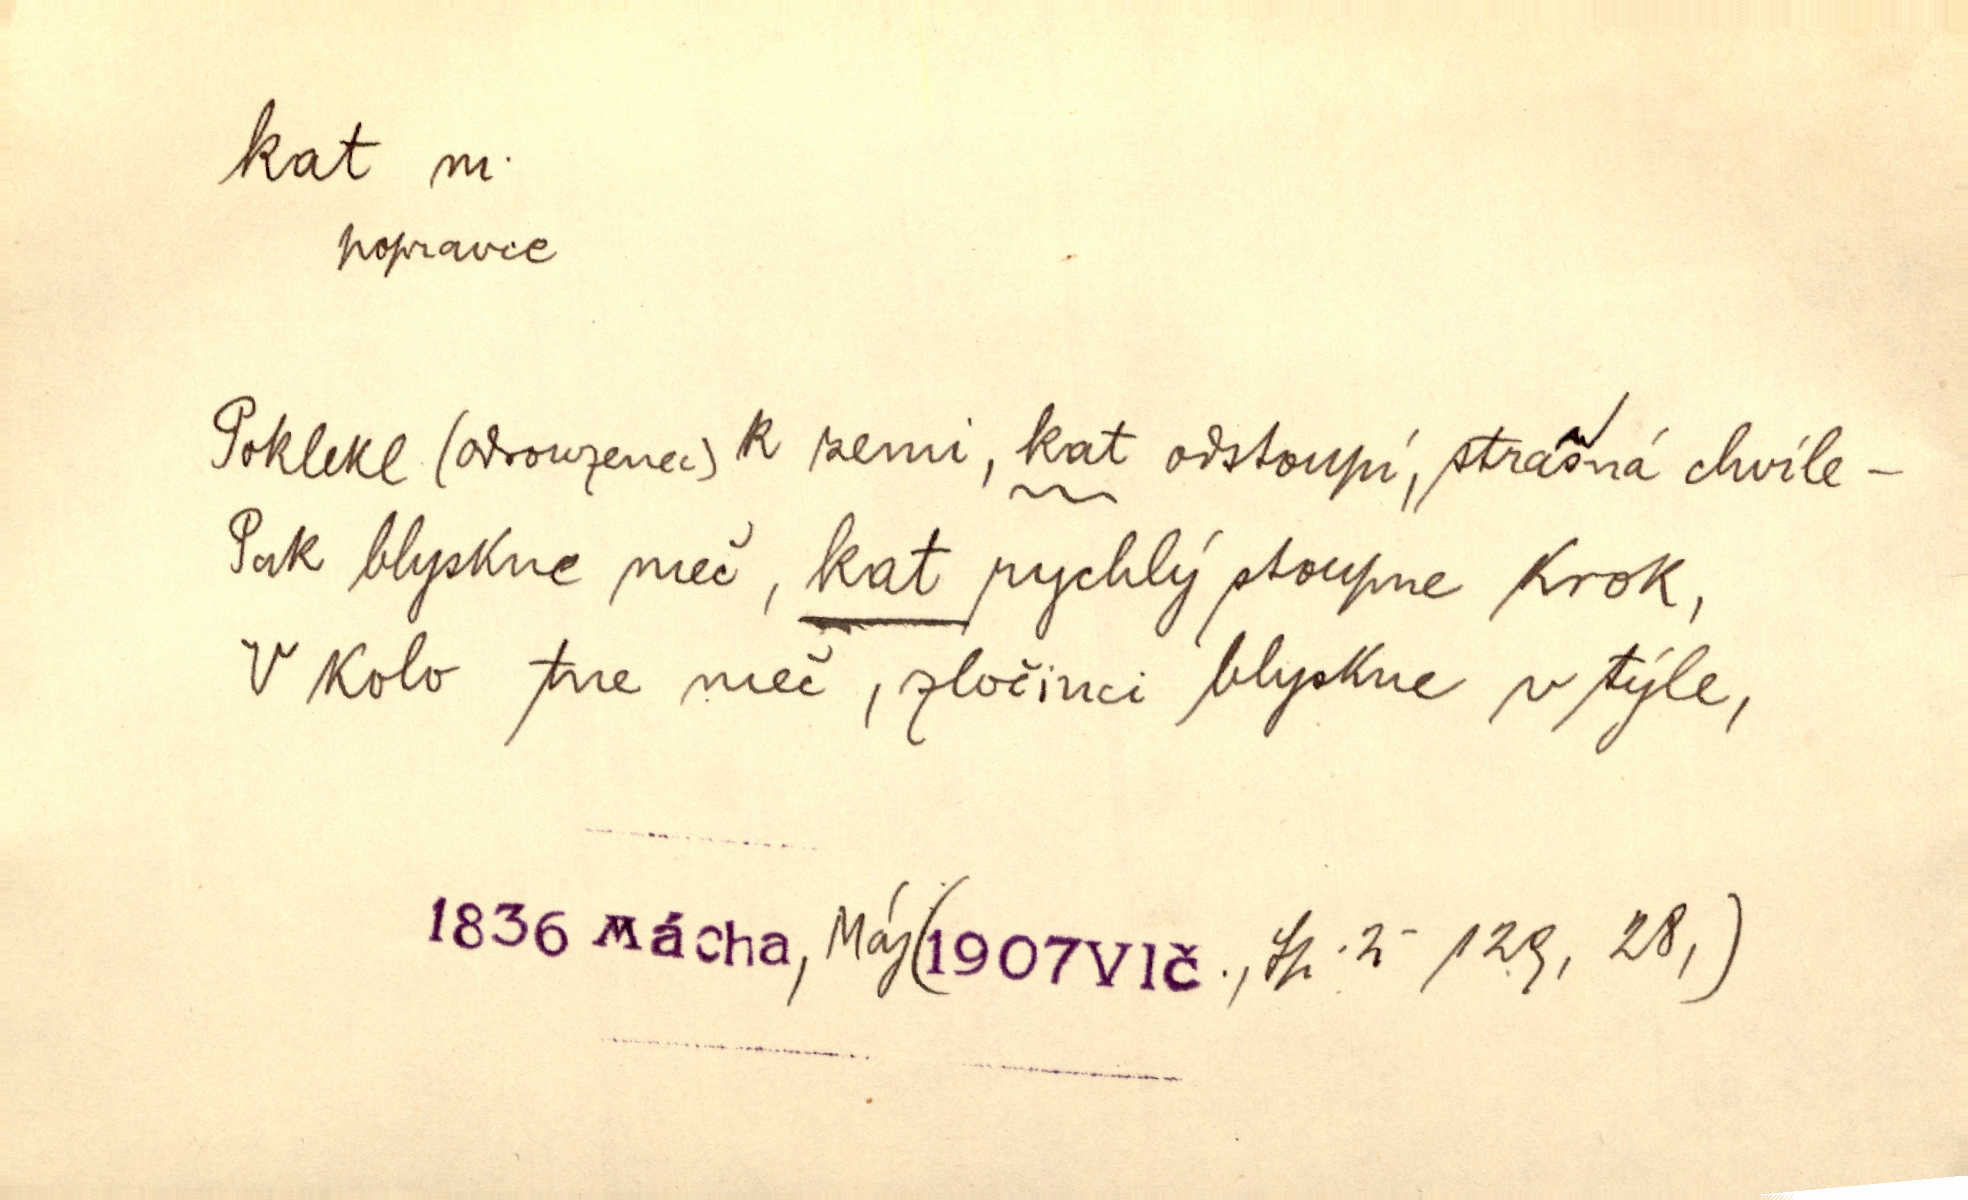 kat m.
popravce
Poklekl (odsouzenec) k zemi, kat odstoupí, strašná chvíle –
Pak blyskne meč, kat rychlý stoupne krok,
V kolo tne meč, zločinci blyskne v týle,
1836 Mácha, Máj (1907 Vlč., Sp. 2 - 129, 28,)